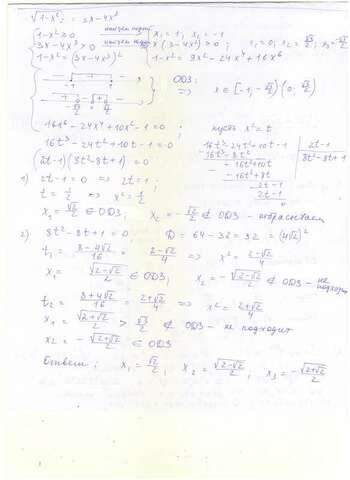 √1-x² = 3x-4x³
{ 1-x² ≥ 0 найдём корни x₁ = 1; x₂ = -1
3x-4x³ ≥ 0 найдём корни x(3-4x²) ≥ 0; x₁=0; x₂=√3/2; x₃=-√3/2
1-x² = (3x-4x³)² 1-x² = 9x² - 24x⁴ + 16x⁶
-1 1 ОДЗ:
-√3/2 0 √3/2 => x ∈ [-1; -√3/2) (0; √3/2)
16x⁶ - 24x⁴ + 10x² - 1 = 0; пусть x² = t
16t³ - 24t² + 10t - 1 = 0; 16t³-24t²+10t-1 | 2t-1
(2t-1)(8t²-8t+1) = 0 16t³-8t² 8t²-8t+1
-16t²+10t
-16t²+8t
2t-1
2t-1
0
1) 2t-1 = 0 => 2t = 1;
t = 1/2 => x² = 1/2
x₁ = √2/2 ∈ ОДЗ; x₂ = -√2/2 ∉ ОДЗ - отбрасываем
2) 8t² - 8t + 1 = 0; D = 64 - 32 = 32 = (4√2)²
t₁ = 8-4√2/16 = 2-√2/4 => x² = 2-√2/4
x₁ = √2-√2/2 ∈ ОДЗ; x₂ = -√2-√2/2 ∉ ОДЗ - не подходит
t₂ = 8+4√2/16 = 2+√2/4 => x² = 2+√2/4
x₁ = √2+√2/2 > √3/2 ∉ ОДЗ - не подходит
x₂ = -√2+√2/2 ∈ ОДЗ
Ответ: x₁ = √2/2; x₂ = √2-√2/2; x₃ = -√2+√2/2